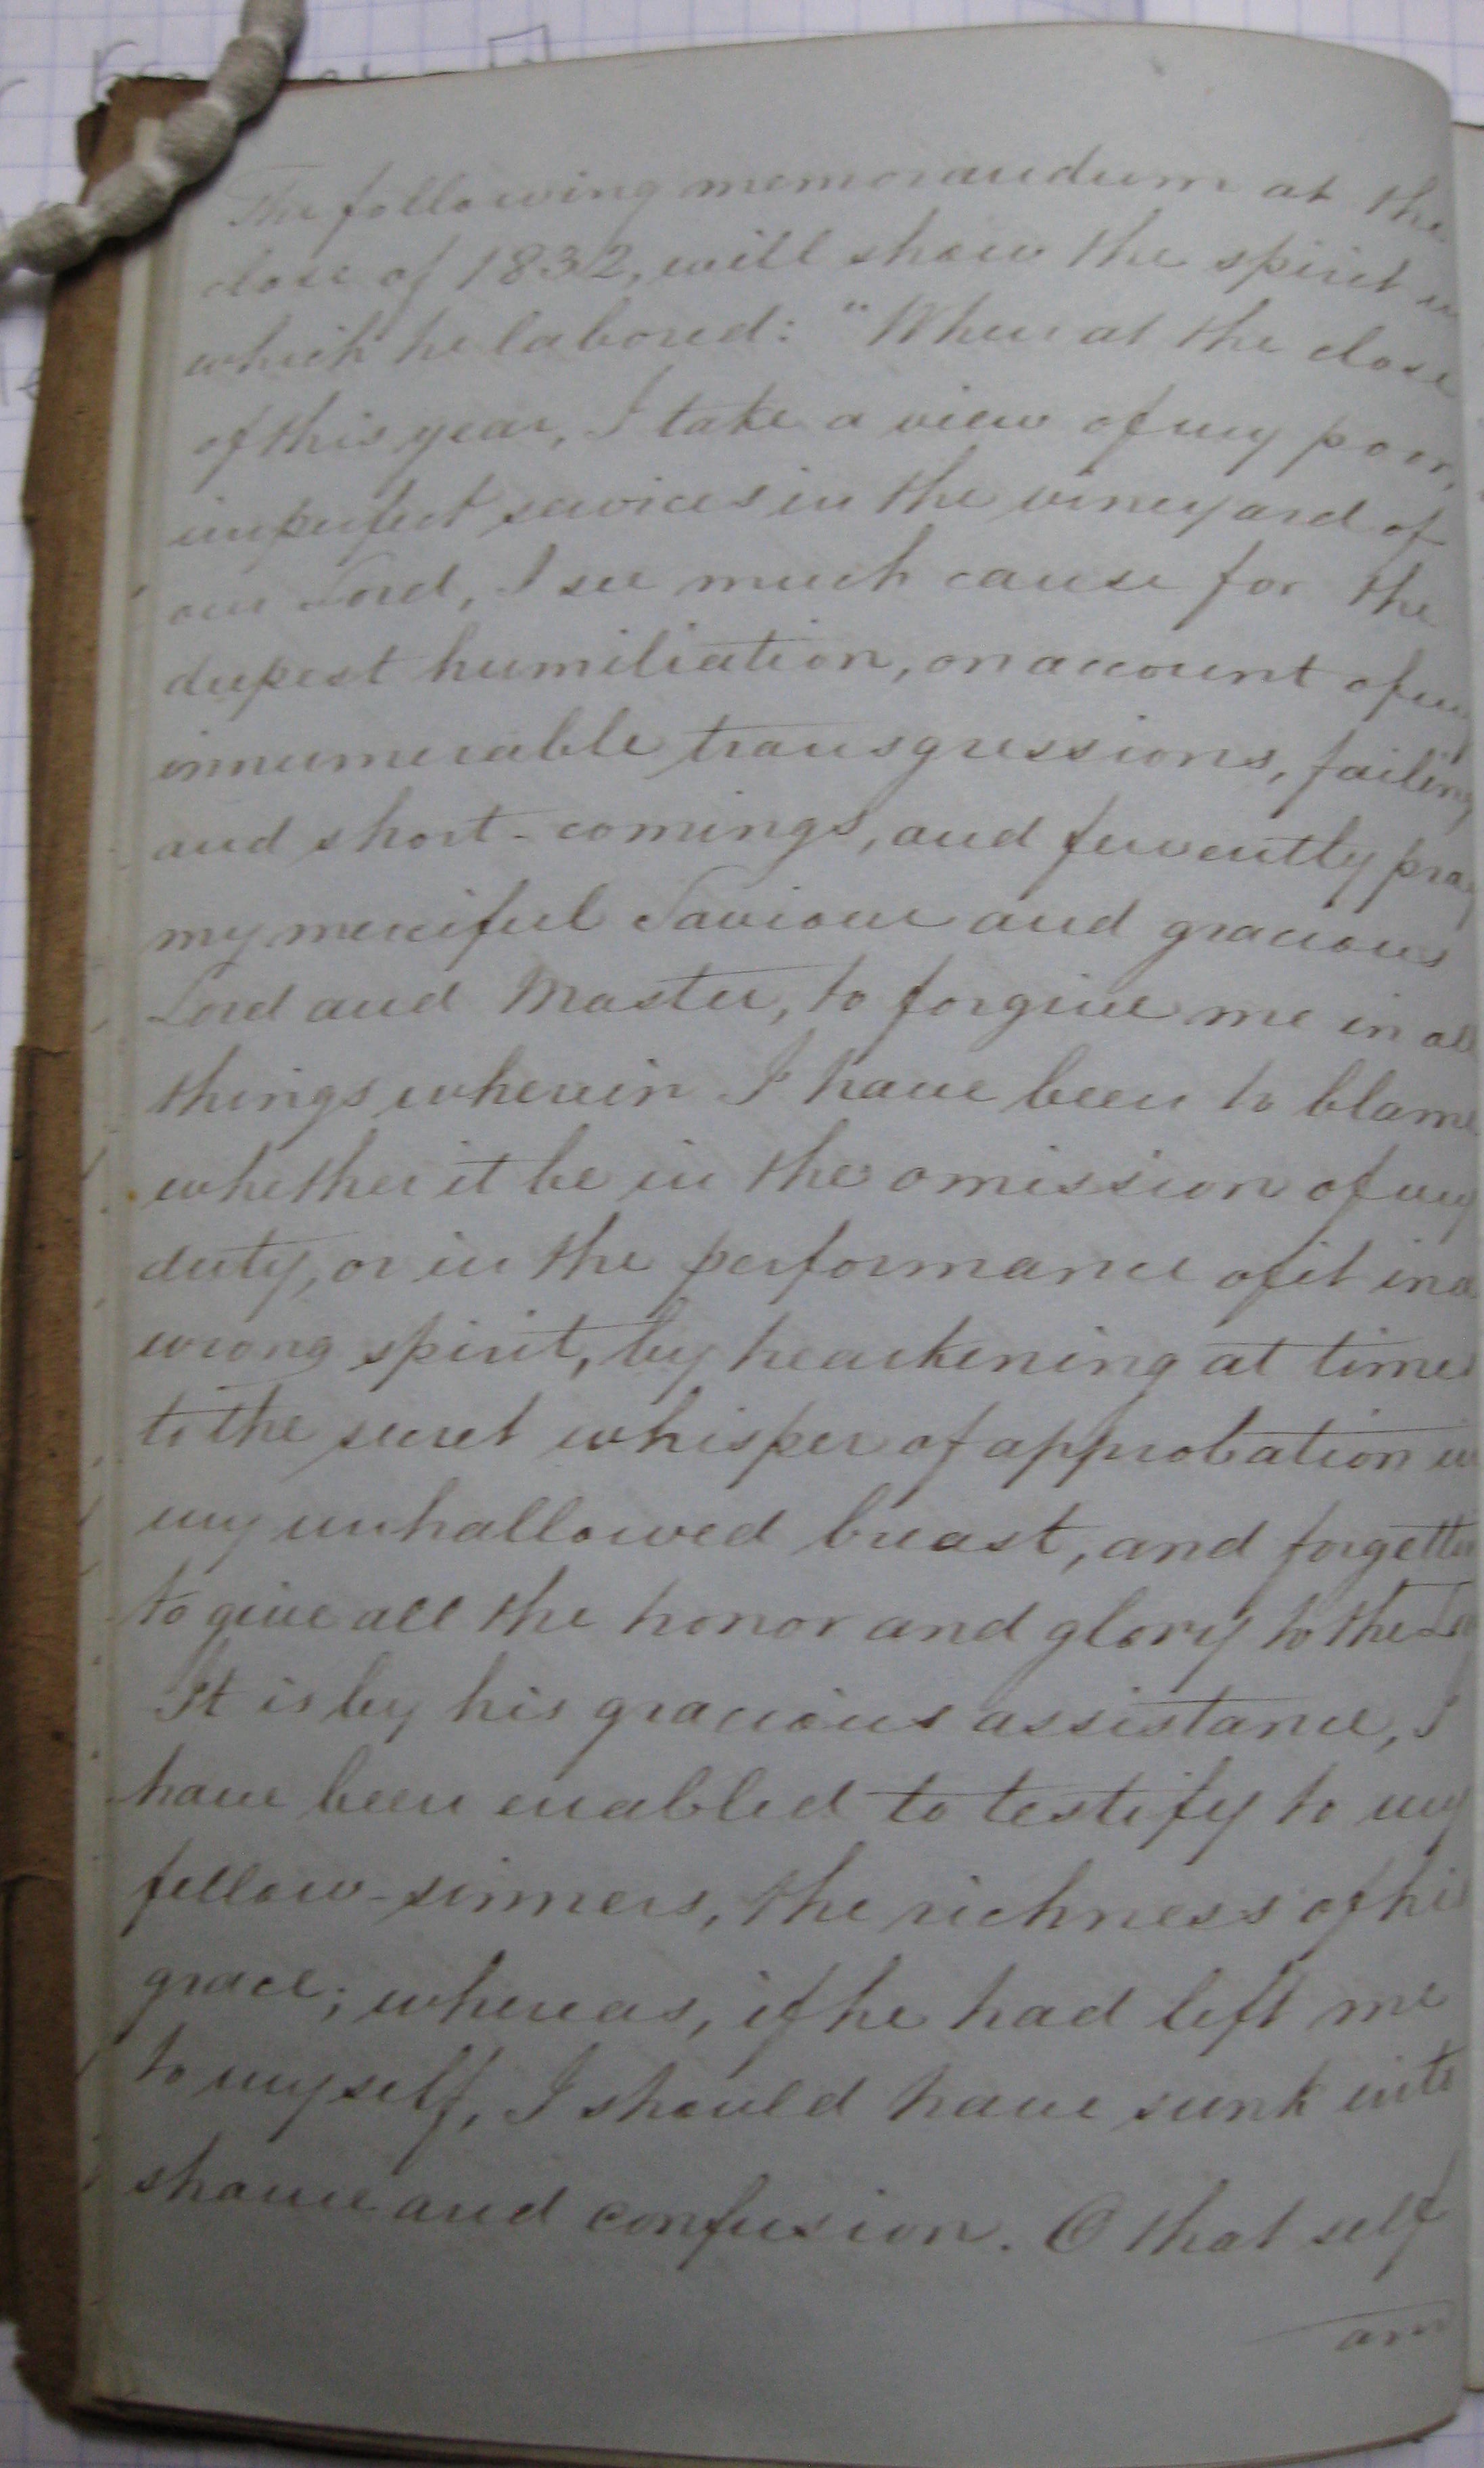 The following memorandum at the
close of 1832, will show the spirit in
which he labored: "When at the close
of this year, I take a view of my poor,
imperfect services in the vineyard of
our Lord, I see much cause for the
deepest humiliation, on account of my
innumerable transgressions, failing
and short-comings, and fervently pray
my merciful Saviour and gracious
Lord and Master, to forgive me in all
things wherein I have been to blame
whether it be in the omission of my
duty, or in the performance of it in a
wrong spirit, by hearkening at times
to the secret whisper of approbation in
my unhallowed breast, and forgetting
to give all the honor and glory to the Lord
It is by his gracious assistance, I
have been enabled to testify to my
fellow-sinners, the richness of his
grace; whereas, if he had left me
to myself, I should have sunk into
shame and confusion. O that self